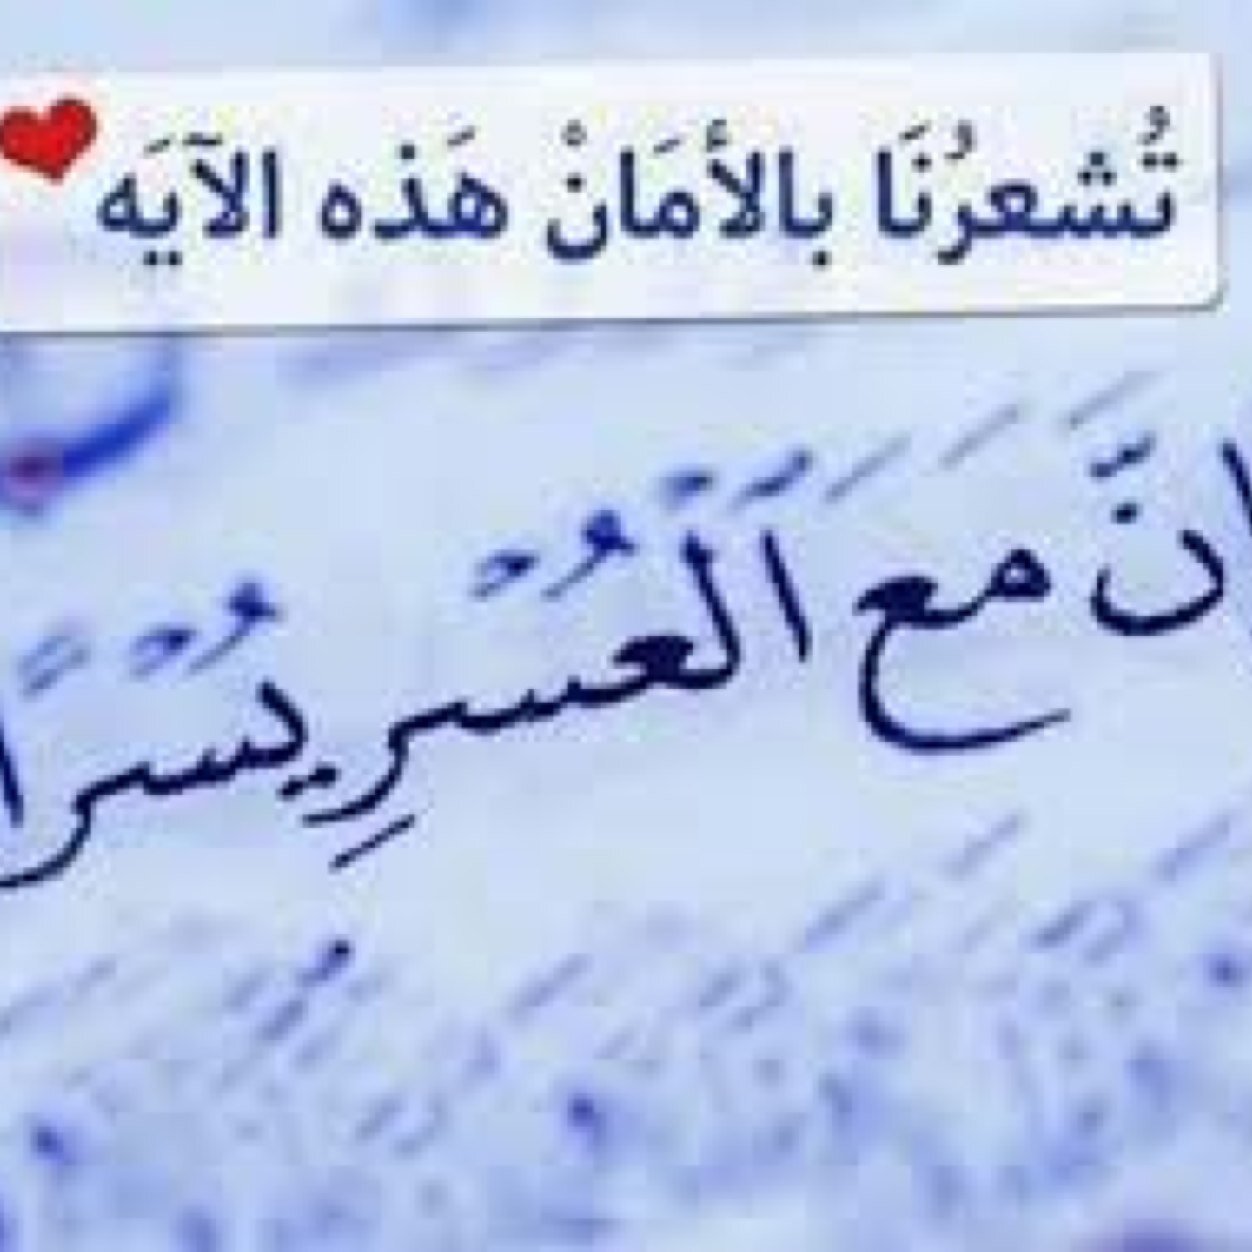 تُشعرُنَا بالأمَانْ هَذه الآيَه
انَّ مَعَ ٱلْعُسْرِ يُسْرًا